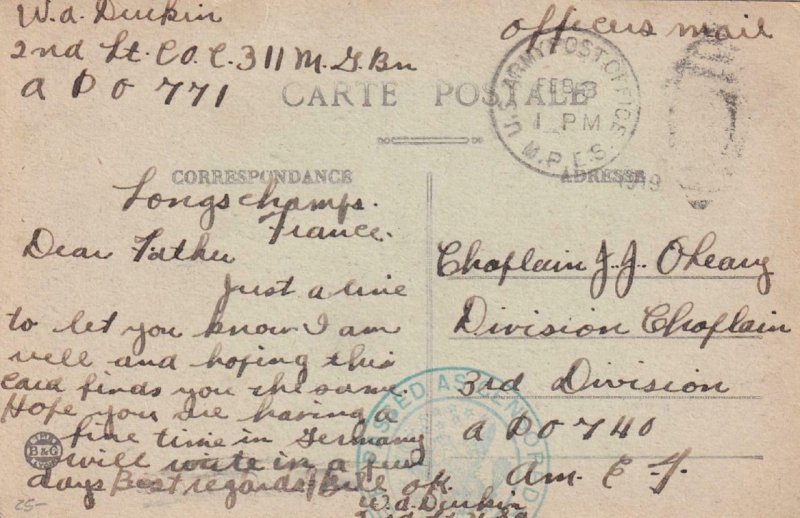 W.A. Durkin
2nd Lt. Co. C. 311 M. G. Bn
A P O 771
Officers mail
U.S. ARMY POST OFFICE
FEB 3
1 PM
M.P.E.S.
1919
CARTE POSTALE
CORRESPONDANCE
ADRESSE
Longschamps.
France.
Dear Father
Just a line
to let you know I am
well and hoping this
card finds you the same.
Hope you are having a
fine time in Germany
will write in a few
days Best regards Bill
B&G
25-
Chaplain J.J. Oheary
Division Chaplain
3rd Division
A P O 740
Am. E F.
PASSED AS CENSORED
O.K.
W.A. Durkin